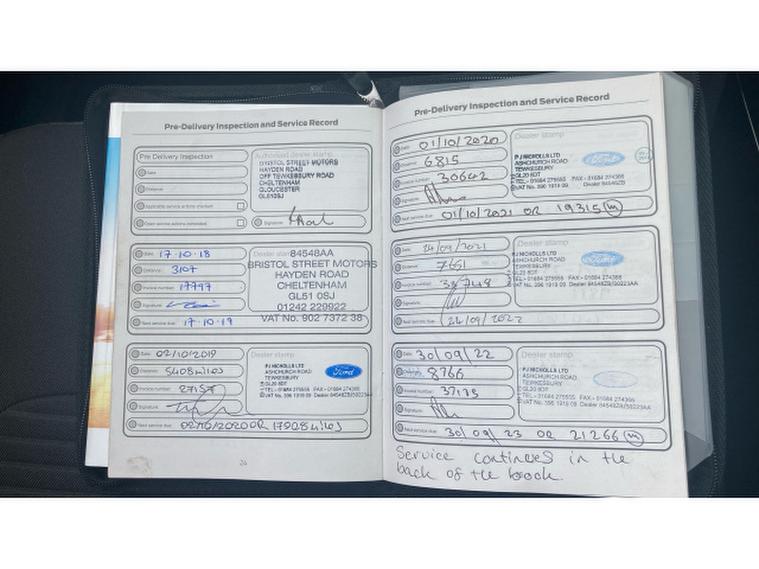 Pre-Delivery Inspection and Service Record
Pre Delivery Inspection
Date
Distance
Applicable service actions checked
Open service actions completed
Authorised dealer stamp
BRISTOL STREET MOTORS
HAYDEN ROAD
OFF TEWKESBURY ROAD
CHELTENHAM
GLOUCESTER
GL510SJ
Signature
Date 17.10.18
Distance 3107
Invoice number 17797
Signature
Next service due 17.10.19
Dealer stamp 84548AA
BRISTOL STREET MOTORS
HAYDEN ROAD
CHELTENHAM
GL51 0SJ
01242 229922
VAT No. 902 7372 38
Date 02/10/2019
Distance 5408 miles
Invoice number 27157
Signature
Next service due 02/10/2020 OR 17908 miles
Dealer stamp
PJ NICHOLLS LTD
ASHCHURCH ROAD
TEWKESBURY
GL20 8DT
TEL - 01684 275555 FAX - 01684 274366
VAT No. 396 1919 09 Dealer 84548ZB/50223AA
Ford
24
Pre-Delivery Inspection and Service Record
Date 01/10/2020
Distance 6815
Invoice number 30642
Signature
Next service due 01/10/2021 OR 19315 m
Dealer stamp
PJ NICHOLLS LTD
ASHCHURCH ROAD
TEWKESBURY
GL20 8DT
TEL - 01684 275555 FAX - 01684 274366
VAT No. 396 1919 09 Dealer 84548ZB
Ford
Date 24/09/2021
Distance 7651
Invoice number
Signature
Next service due 24/09/2022
Dealer stamp
PJ NICHOLLS LTD
ASHCHURCH ROAD
TEWKESBURY
GL20 8DT
TEL - 01684 275555 FAX - 01684 274366
VAT No. 396 1919 09 Dealer 84548ZB/50223AA
Ford
Date 30/09/22
Distance 8766
Invoice number 37175
Signature
Next service due 30/09/23 OR 21266 m
Dealer stamp
PJ NICHOLLS LTD
ASHCHURCH ROAD
TEWKESBURY
GL20 8DT
TEL - 01684 275555 FAX - 01684 274366
VAT No. 396 1919 09 Dealer 84548ZB/50223AA
Service continues in the
back of the book.